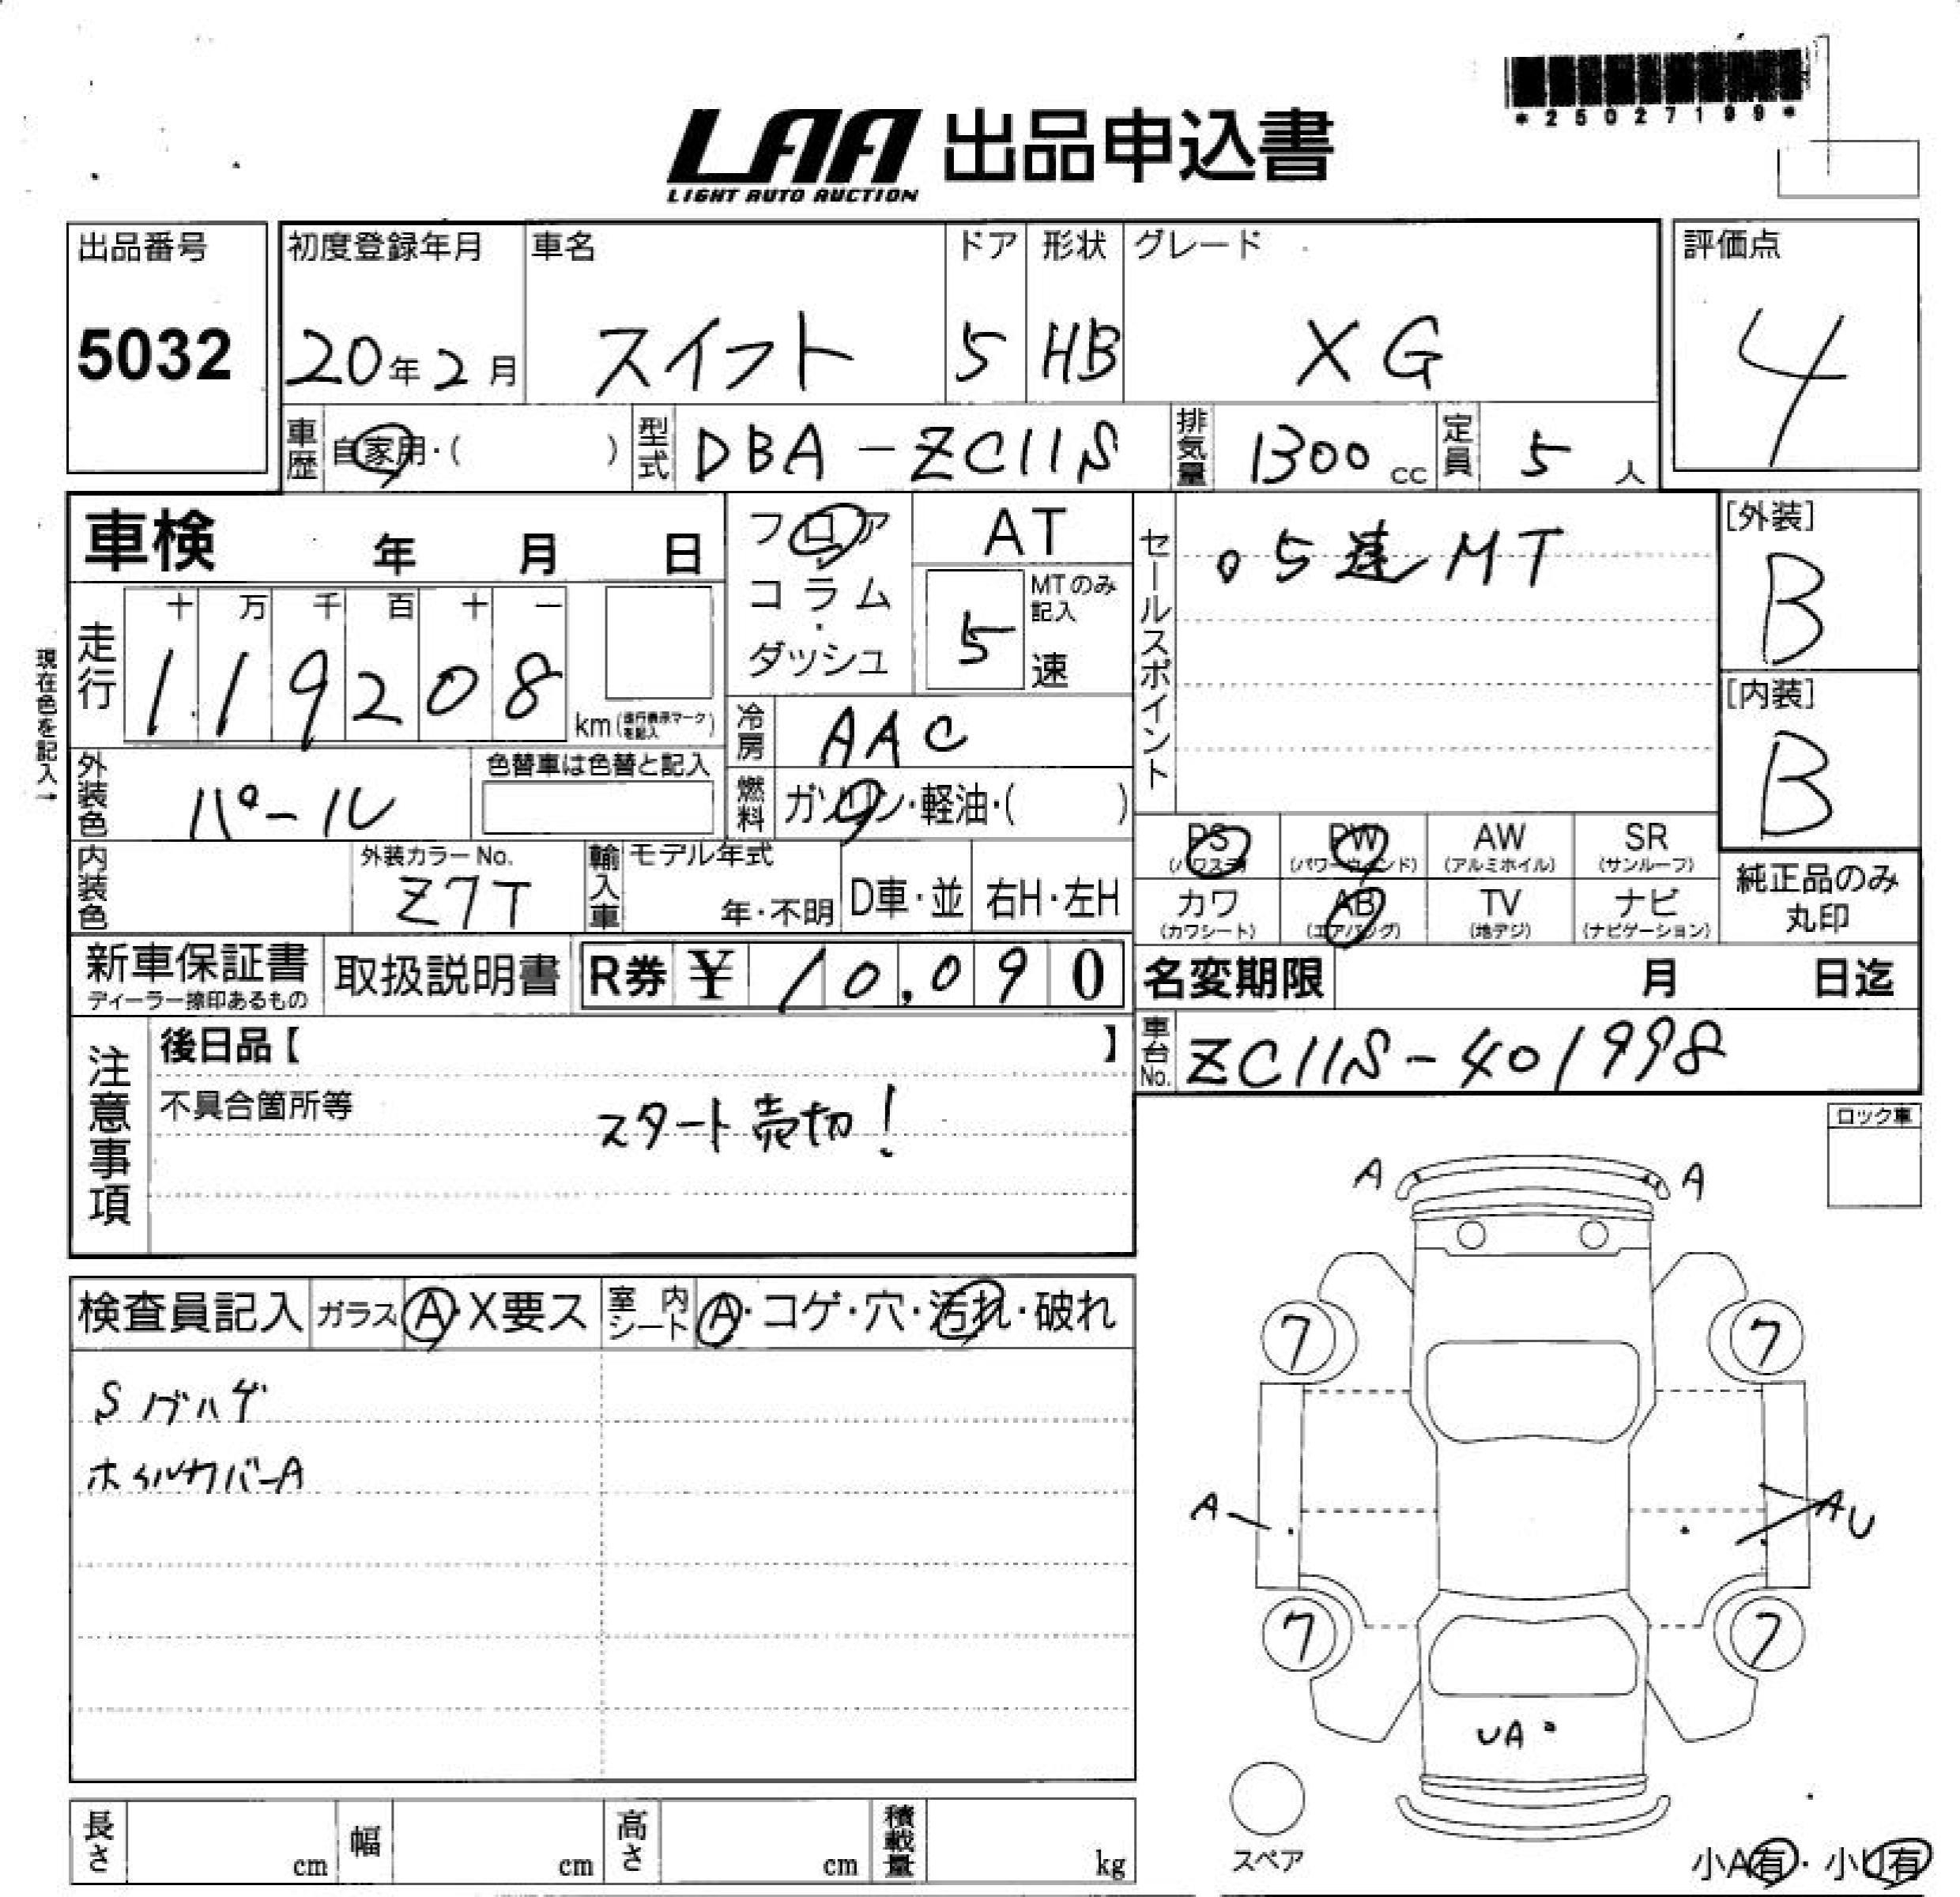 *25027199*
LAA 出品申込書
LIGHT AUTO AUCTION
出品番号 初度登録年月 車名 ドア 形状 グレード 評価点
5032 20年2月 スイフト 5 HB XG 4
車歴 自家用・( ) 型式 DBA-ZC11S 排気量 1300 cc 定員 5 人
車検 年 月 日
フロア AT
コラム
ダッシュ
MTのみ記入
5 速
セールスポイント
。5速MT
[外装]
B
[内装]
B
現在色を記入→
走行 十 万 千 百 十 一
119208 km(走行表示マークを記入)
冷房 AAC
外装色 パール 色替車は色替と記入
燃料 ガソリン・軽油・( )
PS (パワステ) PW (パワーウィンド) AW (アルミホイル) SR (サンルーフ)
カワ (カワシート) AB (エアバッグ) TV (地デジ) ナビ (ナビゲーション)
純正品のみ
丸印
内装色 外装カラーNo. Z7T 輸入車 モデル年式 年・不明 D車・並 右H・左H
新車保証書 取扱説明書 R券 ¥ 10,090
ディーラー捺印あるもの
名変期限 月 日迄
車台No. ZC11S-401998
注意事項
後日品【 】
不具合箇所等
スタート売切!
ロック車
検査員記入 ガラス A・X要ス 室内シート A・コゲ・穴・汚れ・破れ
Sノブハゲ
ホイルカバーA
A A
7 7
A AU
7 7
UA
スペア
小A有・小U有
長さ cm 幅 cm 高さ cm 積載量 kg